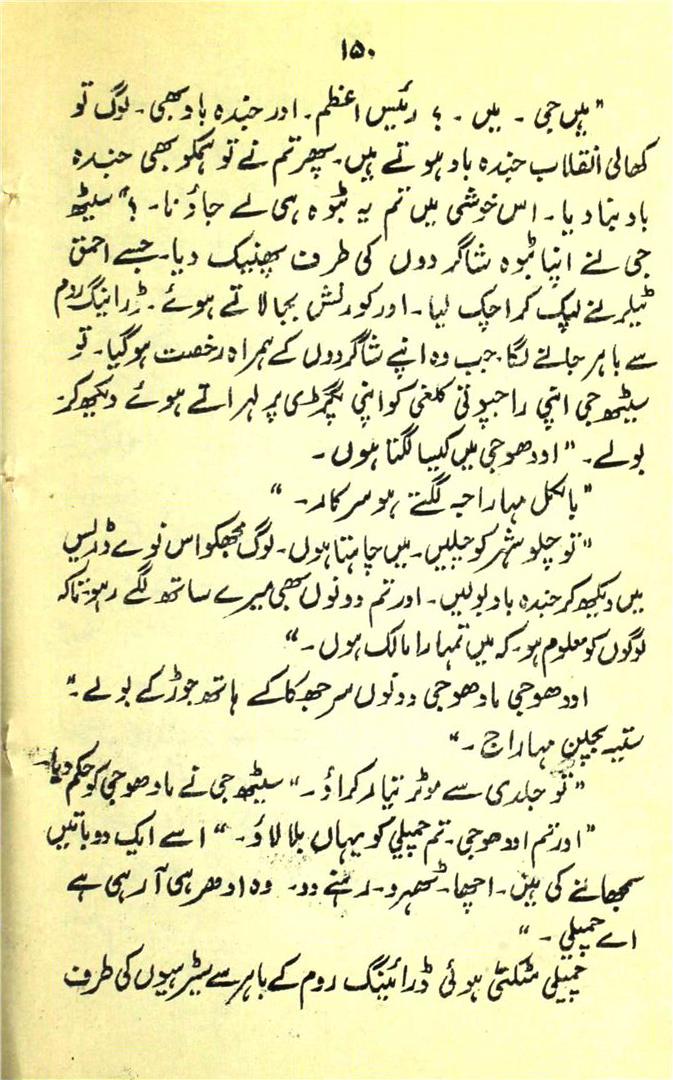 ۱۵۰
"ہیں جی ۔ ہیں ۔ ؟ رئیس اعظم ۔ اور جندہ باد بھی ۔ لوگ تو
کھالی انقلاب جندہ باد ہوتے ہیں ۔ پھر تم نے تو ہمکو بھی جندہ
باد بنا دیا ۔ اس خوشی میں تم یہ بٹوہ ہی لے جاؤ نا ۔ ؟" سیٹھ
جی نے اپنا بٹوہ شاگردوں کی طرف پھینک دیا ۔ جسے احمق
ٹیلر نے لپک کر اچک لیا ۔ اور کورنش بجا لاتے ہوئے ۔ ڈرائینگ روم
سے باہر جانے لگا ۔ جب وہ اپنے شاگردوں کے ہمراہ رخصت ہو گیا ۔ تو
سیٹھ جی اپنی راجپوتی کلغی کو اپنی پگڑی پر لہراتے ہوئے دیکھ کر
بولے ۔ "اودھو جی میں کیسا لگتا ہوں ۔
"بالکل مہاراجہ لگتے ہو سرکار ۔ "
"تو چلو شہر کو چلیں ۔ میں چاہتا ہوں ۔ لوگ مجھکو اس نوے ڈریس
میں دیکھ کر جندہ باد بولیں ۔ اور تم دونوں بھی میرے ساتھ لگے رہو ۔ تاکہ
لوگوں کو معلوم ہو ۔ کہ میں تمہارا مالک ہوں ۔ "
اودھو جی مادھو جی دونوں سر جھکا کے ہاتھ جوڑ کے بولے ۔ "
ستیہ بچن مہاراج ۔ "
"تو جلدی سے موٹر تیار کراؤ ۔ " سیٹھ جی نے مادھو جی کو حکم دیا ۔
"اور تم اودھو جی ۔ تم چمپلی کو یہاں بلا لاؤ ۔ " اسے ایک دو باتیں
سمجھانے کی ہیں ۔ اچھا ۔ ٹھہرو ۔ رہنے دو ۔ وہ ادھر ہی آ رہی ہے
اے چمپلی ۔ "
چمپلی مٹکتی ہوئی ڈرائینگ روم کے باہر سے سیڑھیوں کی طرف